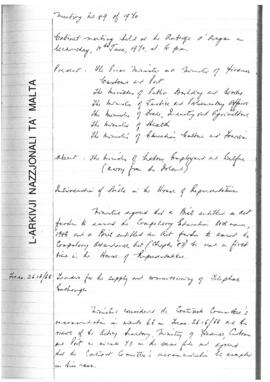 L-ARKIVJI NAZZJONALI TA' MALTA
Meeting No 89 of 1970
Cabinet meeting held at the Auberge d'Aragon on
Wednesday, 10th June, 1970, at 6 p.m.
Present: The Prime Minister and Minister of Finance,
Customs and Port
The Minister of Public Building and Works
The Minister of Justice and Parliamentary Affairs
The Minister of Trade, Industry and Agriculture
The Minister of Health
The Minister of Education, Culture and Tourism
Absent: The Minister of Labour, Employment and Welfare
(away from the Island)
Introduction of Bills in the House of Representatives
Ministers agreed that a Bill entitled an Act
further to amend the Compulsory Education Ordinance,
and a Bill entitled an Act further to amend the
Compulsory Attendance Act (Chapter ) be read a first
time in the House of Representatives.
Tenders for the supply and commissioning of Telephone
Exchanges
Ministers considered the Contracts Committee's
recommendation in minute 66 in and the
views of the Acting Secretary, Ministry of Finance, Customs
and Port in minute 73 in the same file and agreed
that the Contracts Committee's recommendation be accepted
in this case.